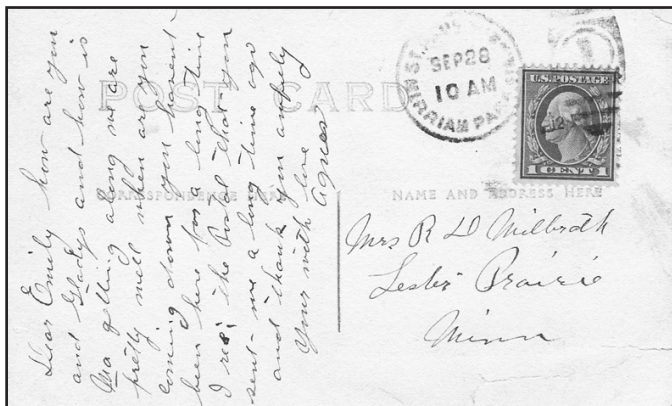 POST CARD
CORRESPONDENCE HERE
NAME AND ADDRESS HERE
Dear Emily how are you
and Gladys and how is
Ma getting along we are
pretty well when are you
coming down you havent
been here for a long time
I rec: the Postal that you
sent me a long time ago
and thank you awfully
Yours with love
Agnes
SEP 28
10 AM
MERRIAM PARK
U.S. POSTAGE
1 CENT 1
Mrs R D Milbrath
Lester Prairie
Minn